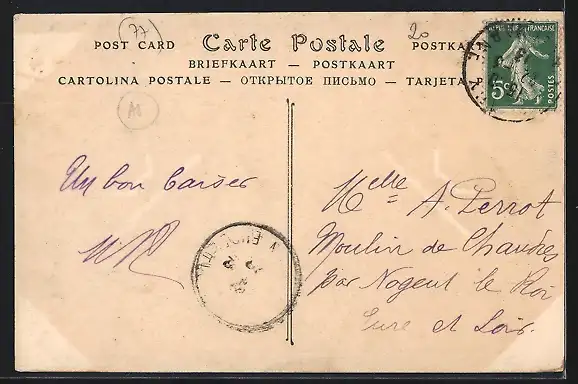 77
20
POST CARD Carte Postale POSTKARTE
BRIEFKAART — POSTKAART
CARTOLINA POSTALE — ОТКРЫТОЕ ПИСЬМО — TARJETA
REPUBLIQUE FRANÇAISE
5c
POSTES
Un bon baiser
Melle A. Perrot
Moulin de Chandres
par Nogent le Roi
Eure et Loir.